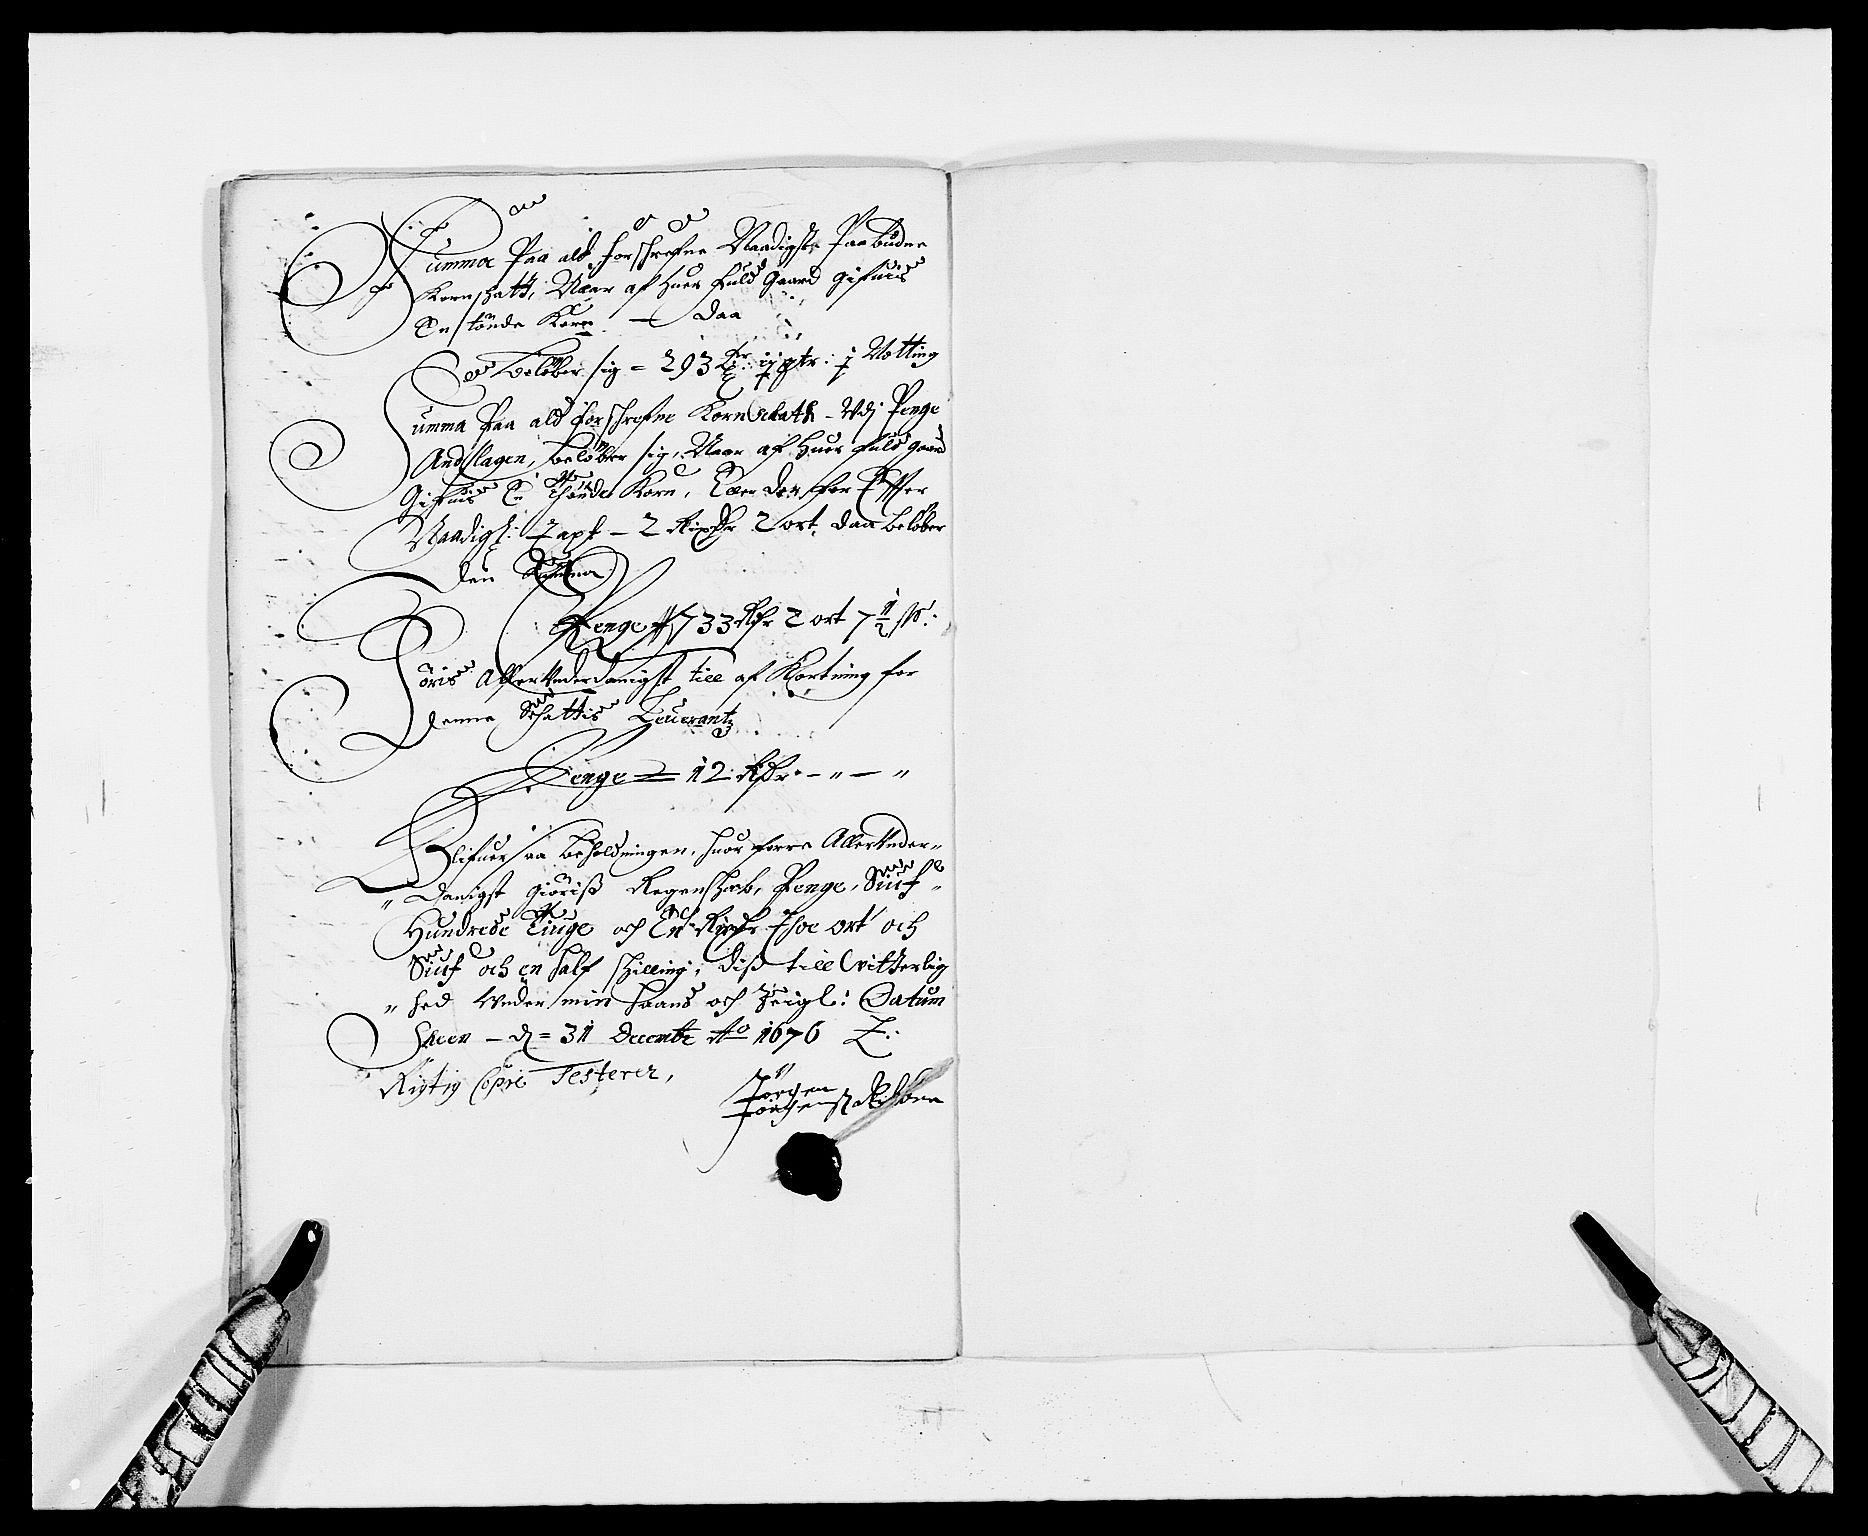 Summa Paa ald forschrefne Naadigst Paabudne
Kornschatt, Naar af huer fuld Gaard Gifuis
En tønde Korn — Daa
Beløber sig = 293 ij qtr: j Notting
Summa Paa ald forschrefne Kornschatt - Udj Penge
Andslagen, beløber sig, Naar af huer fuld gaard
Gifuis En thønde Korn, for Effter
Naadigst: Taxt - 2 Rixdr 2 ort, daa beløber
den Summa
Penge 733 Rdr 2 ort 7 1/2 sk:
Føris Allerunderdanigst till af Kortning for
denne Schattis Leuerantz
Penge = 12 Rdr - " - "
Blifuer saa beholdningen, huor forre Allerunder-
danigst giøris Regenschab, Penge, Siuf
Hundrede Tiuge och En Rixdr Thoe ort och
Siuf och en half schilling; diss till vitterlig
hed under min haand och Zeigl: Datum
Scheen - d = 31 Decembr Ao 1676
Rigtig Copie Testerer,
Jørgen
Jørgenss